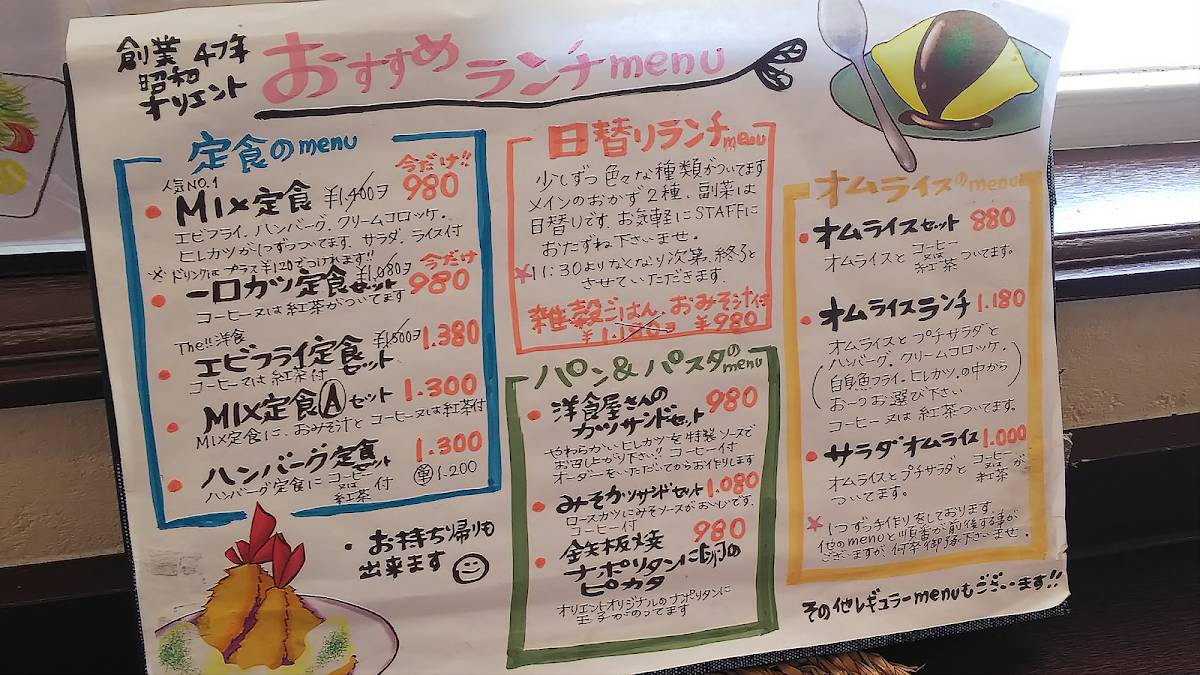 創業
昭和47年
オリエント
おすすめランチmenu
定食のmenu
人気NO.1
今だけ!!
MIX定食 ¥1,400ヲ 980
エビフライ、ハンバーグ、クリームコロッケ、
ヒレカツが1つずつついてます、サラダ、ライス付
※ドリンクはプラス¥120でつけれます!!
今だけ
一口カツ定食セット ¥1,080ヲ 980
コーヒー又は紅茶がついてます
The!!洋食
エビフライ定食セット ¥1,500ヲ 1.380
コーヒー又は紅茶付
MIX定食Ⓐセット 1.300
MIX定食に、おみそ汁とコーヒー又は紅茶付
ハンバーグ定食セット 1.300
ハンバーグ定食にコーヒー又は紅茶付
㊥1.200
・お持ち帰りも
出来ます
日替りランチmenu
少しずつ色々な種類がついてます
メインのおかず2種、副菜は
日替りです。お気軽にSTAFFに
おたずね下さいませ。
★11:30よりなくなり次第、終了と
させていただきます。
雑穀ごはん、おみそ汁付
¥980
パン&パスタのmenu
洋食屋さんの
カツサンドセット 980
やわらかいヒレカツを特製ソースで
お召し上がり下さい!! コーヒー付
オーダーをいただいてからお作りします
みそカツサンドセット 1.080
ロースカツにみそソースがお〜いしです。
コーヒー付
鉄板焼 980
ナポリタンに卵の
ピカタ
オリエントオリジナルのナポリタンに
玉子がのってます
オムライスのmenu
オムライスセット 880
オムライスとコーヒー又は紅茶ついてます。
オムライスランチ 1.180
オムライスとプチサラダと
ハンバーグ、クリームコロッケ、
白身魚フライ、ヒレカツ、の中から
お一つお選び下さい
コーヒー又は紅茶ついてます。
サラダオムライス 1.000
オムライスとプチサラダとコーヒー又は紅茶が
ついてます。
★1つずつ手作りをしております。
他のmenuと順番が前後する事が
ございますが、何卒御了承下さいませ。
その他レギュラーmenuもございます!!